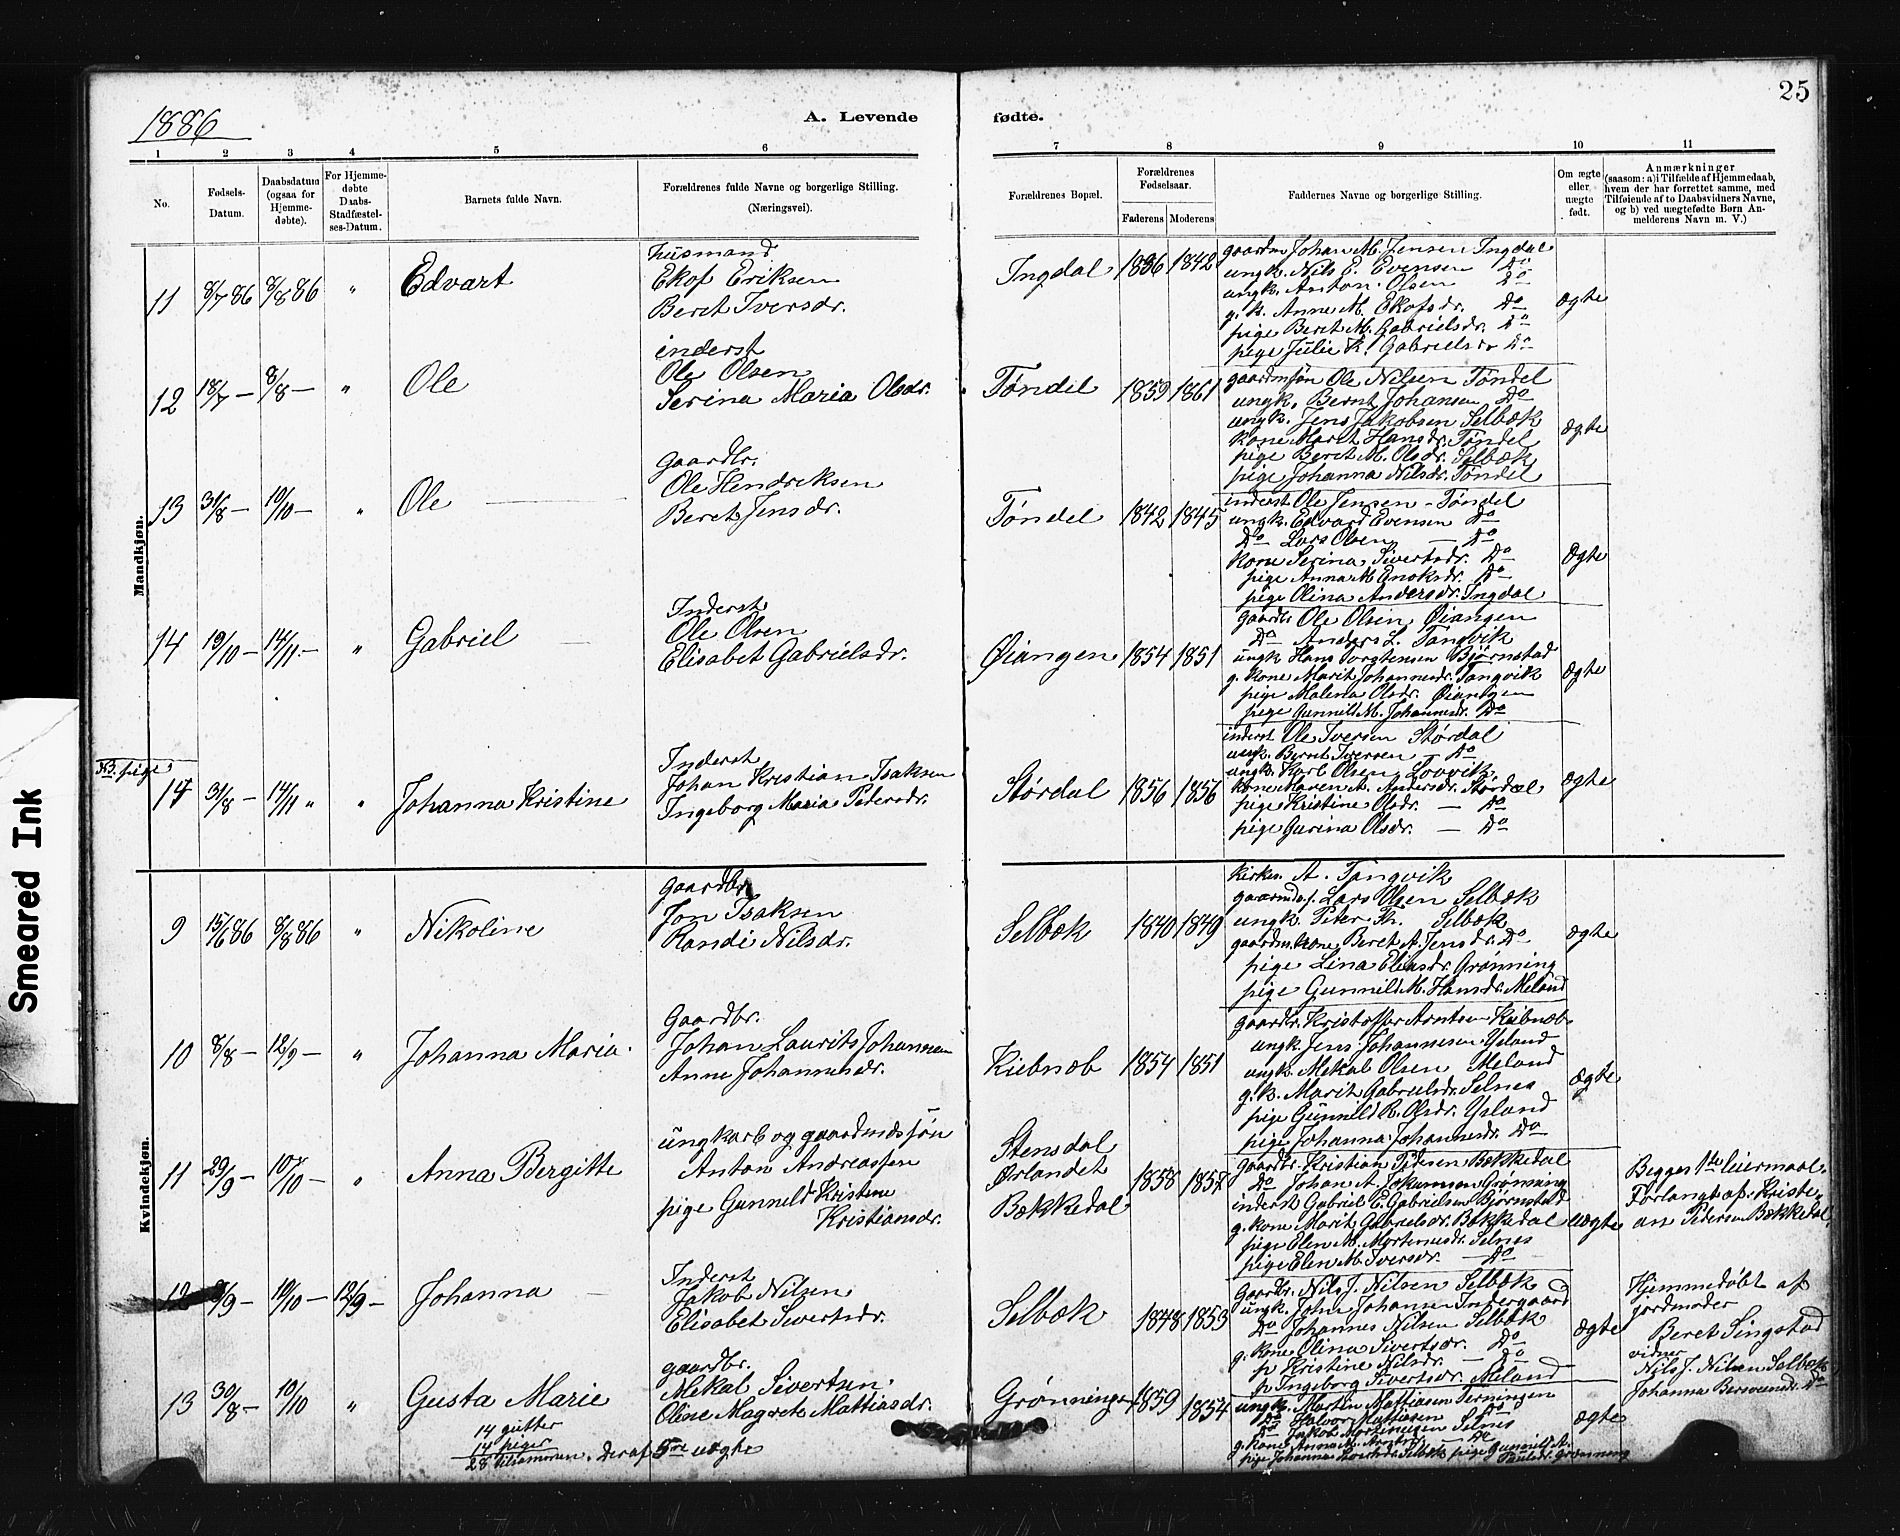 25
1886
A. Levende fødte.
1 2 3 4 5 6 7 8 9 10 11
No.
Fødsels-Datum.
Daabsdatum (ogsaa for Hjemme-døbte).
For Hjemme-døbte Daabs-Stadfæstel-ses-Datum.
Barnets fulde Navn.
Forældrenes fulde Navne og borgerlige Stilling.
(Næringsvei).
Forældrenes Bopæl.
Forældrenes Fødselsaar.
Faderens Moderens
Faddernes Navne og borgerlige Stilling.
Om ægte eller uægte født.
Anmærkninger
(saasom: a) i Tilfælde af Hjemmedaab, hvem der har forrettet samme, med Tilføiende af to Daabsvidners Navne, og b) ved uægtefødte Børn An-melderens Navn m. V.)
Mandkjøn.
11 8/7 86 8/8 86 " Edvart
husmand
Ekof Eriksen
Beret Iversdr.
Ingdal 1836 1842
gaardm Johan M. Jensen Ingdal
ungk. Nils E. Evensen Do
ungk. Anton Olsen Do
g. k. Anne M. Ekofsdr. Do
pige Beret M. Gabrielsdr. Do
pige Julie K. Gabrielsdr Do
ægte
12 18/7 - 8/8 - " Ole
inderst
Ole Olsen
Serina Maria Olsdr.
Tøndel 1859 1861
gaardmsøn Ole Nilsen Tøndel
ungk. Bernt Johansen Do
ungk. Jens Jakobsen Selbæk
kone Marit Hansdr. Tøndel
pige Beret M. Olsdr. Selbæk
pige Johanna Nilsdr. Tøndel
ægte
13 31/8 - 10/10 - " Ole
Gaardbr.
Ole Hendriksen
Beret Jensdr.
Tøndel 1842 1845
inderst Ole Jensen - Tøndel
ungk. Edvard Evensen Do
Do Lars Olsen - Do
kone Serina Sivertsdr. Do
pige Anna M Enoksdr. Do
pige Olina Andersdr. Ingdal
ægte
14 19/10 - 14/11 - " Gabriel
Inderst
Ole Olsen
Elisabet Gabrielsdr.
Øiangen 1854 1851
gaardbr Ole Olsen Øiangen
Do Anders L. Tangvik
ungk Hans Torstensen Bjørnstad
g. kone Marit Johannesdr. Tangvik
pige Malena Olsdr. Øiangen
pige Gunnild M. Johannesdr. Do
ægte
NB. pige
14 31/8 - 14/11 " " Johanna Kristine
Inderst
Johan Kristian Isaksen
Ingeborg Maria Pedersdr.
Størdal 1856 1856
inderst Ole Iversen Størdal
ungk. Bernt Iversen - Do
ungk. Karl Olsen Lovvik.
kone Maren A. Andersdr. Størdal
pige Kristine Olsdr. - Do
pige Gurina Olsdr. - Do
ægte
Kvindekjøn.
9 15/6 86 8/8 86 " Nikoline
Gaardbr
Jon Isaksen
Randi Nilsdr.
Selbæk 1840 1849
kirkes. A. Tangvik
Lars Olsen Selbæk
ungk Peter Selbæk
gaardm.kone Beret A. Jensdr. Do
pige Lina Eliasdr. Grønning
pige Gunnild M. Hansdr. Meland
ægte
10 8/8 - 12/9 - " Johanna Maria
Gaardbr.
Johan Laurits Johansen
Anne Johannesdr.
Kiebnæb 1854 1851
gaardbr. Kristoffer Arntsen Kiebnæb
ungk. Jens Johannesen Ysland
ungk. Mekal Olsen Meland
g. k. Marit Gabrielsdr. Selnes
pige Gunnild R. Olsdr. Ysland
pige Johanna Johannesdr. Do
ægte
11 29/9 - 10/10 - " Anna Bergitte
ungkarl og gaardmdssøn
Anton Andreassen
pige Gunnild Kristine
Kristiansdr.
Stensdal
Ørlandet
Bækkedal
1858 1857
gaardbr. Kristian Pedersen Bækkedal
Do Johan A. Johannesen Grønning
inderst Gabriel E. Gabrielsen Bjørnstad
g. kone Marit Gabrielsdr. Bækkedal
pige Elen M. Mortensdr. Selnes
pige Elen M. Iversdr. - Do
uægte
Begges 1ste leiermaal.
Forlangt af: Kristi-
an Pedersen Bækkedal
12 /9 - 10/10 - 12/9 - Johanna
Inderst
Jakob Nilsen
Elisabet Sivertsdr.
Selbæk 1848 1853
Gaardbr. Nils J. Nilsen Selbæk
ungk. John Johansen Indergaard
Do Johannes Nilsen Selbæk
g. kone Olina Sivertsdr. Do
p. Kristine Nilsdr. - Do
p. Ingeborg Sivertsdr. Meland
ægte
Hjemmedøbt af
jordmoder
Beret Singstad
vidner
Nils J. Nilsen Selbæk
Johanna Do
13 30/8 - 10/10 " Gusta Marie
gaardbr.
Mekal Sivertsen.
Oline Magrete Mattiasdr.
Grønningen 1859 1854
ungk. Martin Mattiasen Terningen
Do Halvor Mattiasen Do
Do Jakob Mortensen Selnes
g. kone Anna M. - Do
pige Johanna Selbæk pige Gunnild A.
Paulsdr. Grønning
ægte
14 gutter
14 piger
28 tilsammen. Deraf 5re uægte
Smeared Ink